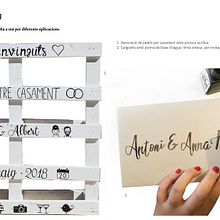 a a mà per diferents aplicacions
1. Decoració de palets per casament amb pintura acrílica
2. Cal·ligrafia amb ploma de base d'aigua i tinta xinesa, per
1.
envinguts
TRE CASAMENT
& Albert
aig · 2018
Antoni & Anna
2.